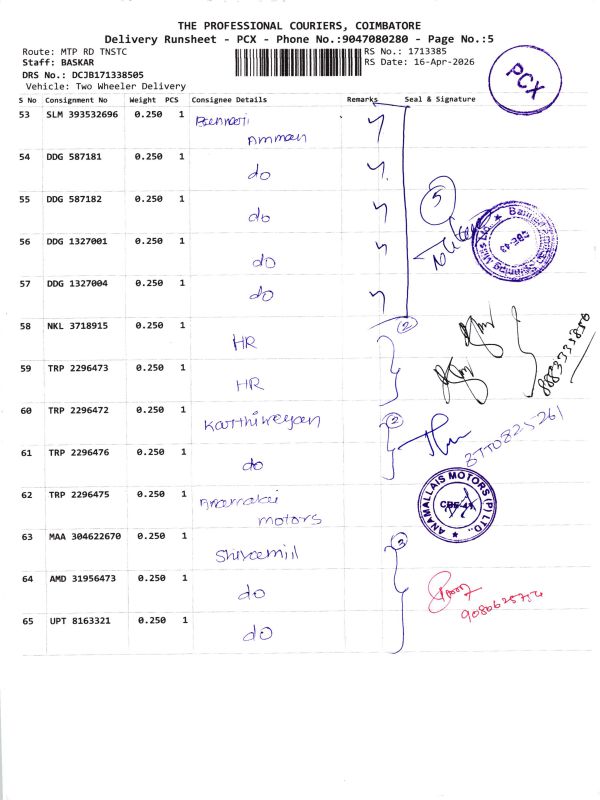 THE PROFESSIONAL COURIERS, COIMBATORE
Delivery Runsheet - PCX - Phone No.:9047080280 - Page No.:5
Route: MTP RD TNSTC
RS No.: 1713385
Staff: BASKAR
RS Date: 16-Apr-2026
DRS No.: DCJB171338505
Vehicle: Two Wheeler Delivery
PCX
S No Consignment No Weight PCS Consignee Details Remarks Seal & Signature
53 SLM 393532696 0.250 1
Amman
54 DDG 587181 0.250 1 do
55 DDG 587182 0.250 1 do
5
56 DDG 1327001 0.250 1 do
CBE-43
57 DDG 1327004 0.250 1 do
58 NKL 3718915 0.250 1 HR
2
8883331856
59 TRP 2296473 0.250 1 HR
60 TRP 2296472 0.250 1 Karthikeyan
2
61 TRP 2296476 0.250 1 do
62 TRP 2296475 0.250 1 Anamalai
motors
ANAMALLAIS MOTORS (P) LTD.,
63 MAA 304622670 0.250 1
3
64 AMD 31956473 0.250 1 do
65 UPT 8163321 0.250 1 do